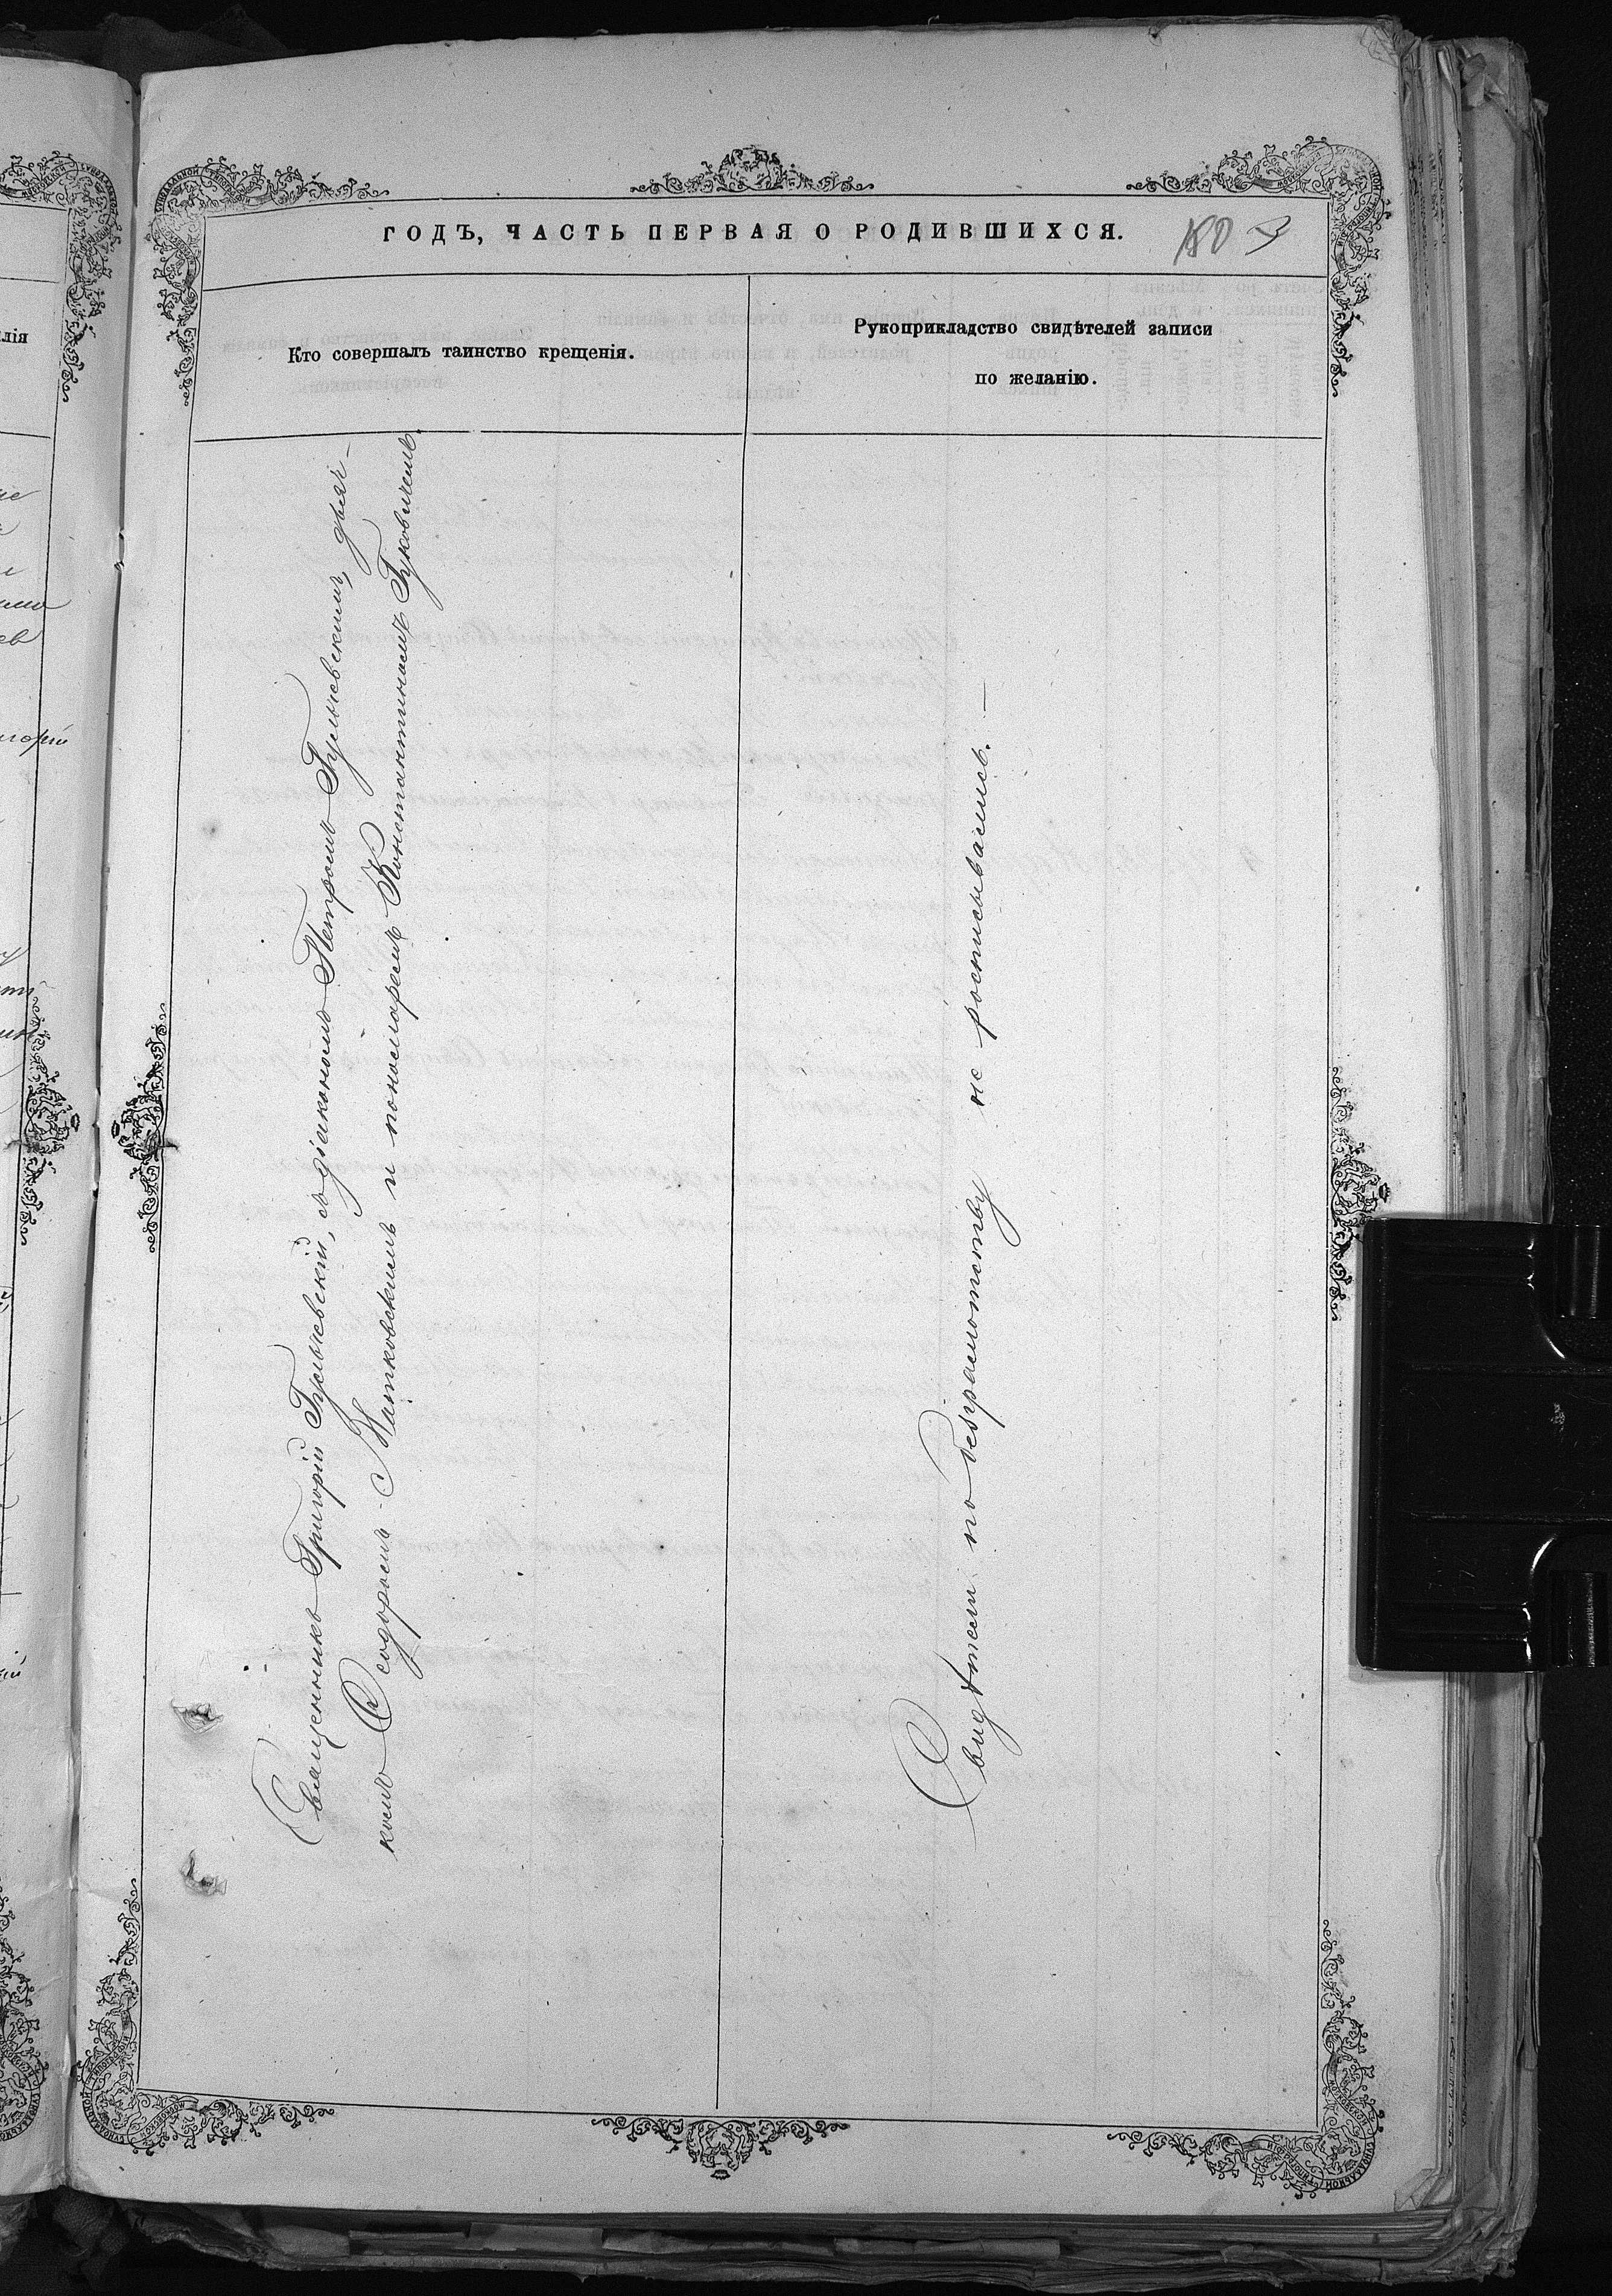 ГОДЪ, ЧАСТЬ ПЕРВАЯ О РОДИВШИХСЯ.
180
Кто совершалъ таинство крещенія.
Рукоприкладство свидѣтелей записи
по желанію.
Священникъ Григорій Гульчевскій, съ діакономъ Петромъ Гульчевскимъ, дьяч-
комъ Ѳеодоромъ Матковскимъ и пономаремъ Константиномъ Гуковичемъ.
Свидѣтели по безграмотству не росписывались. —
лія